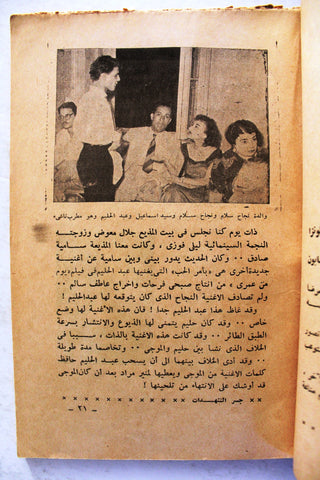 والدة نجاح سلام ونجاح سلام وسيد اسماعيل وعبد الحليم وهو مطرب ناشىء
ذات يوم كنا نجلس فى بيت المذيع جلال معوض وزوجته
النجمة السينمائية ليلى فوزى ، وكانت معنا المذيعة سامية
صادق ٠٠ وكان الحديث يدور بينى وبين سامية عن أغنية
جديدة أخرى هى «بأمر الحب» التى يغنيها عبد الحليم فى فيلم «يوم
من عمرى » من انتاج صبحى فرحات واخراج عاطف سالم ٠٠
ولم تصادف الاغنية النجاح الذى كان يتوقعه لها عبد الحليم
وقد غاظ هذا عبد الحليم جدا ! فان هذه الاغنية لها وضع
خاص ٠٠ وقد كان حليم يتمنى لها الذيوع والانتشار بسرعة
الطبق الطائر ٠٠ وقد كانت هذه الاغنية بالذات ، سببا فى
الخلاف الذى نشأ بين حليم والموجى ٠٠ وتخاصما مدة طويلة
٠٠ وقد أدى الخلاف بينهما الى أن يسحب عبد الحليم حافظ
كلمات الاغنية من الموجى ويعطيها لمنير مراد بعد أن كان الموجى
قد أوشك على الانتهاء من تلحينها !
×× جسر التنهدات ××××××××××
— ٢١ —